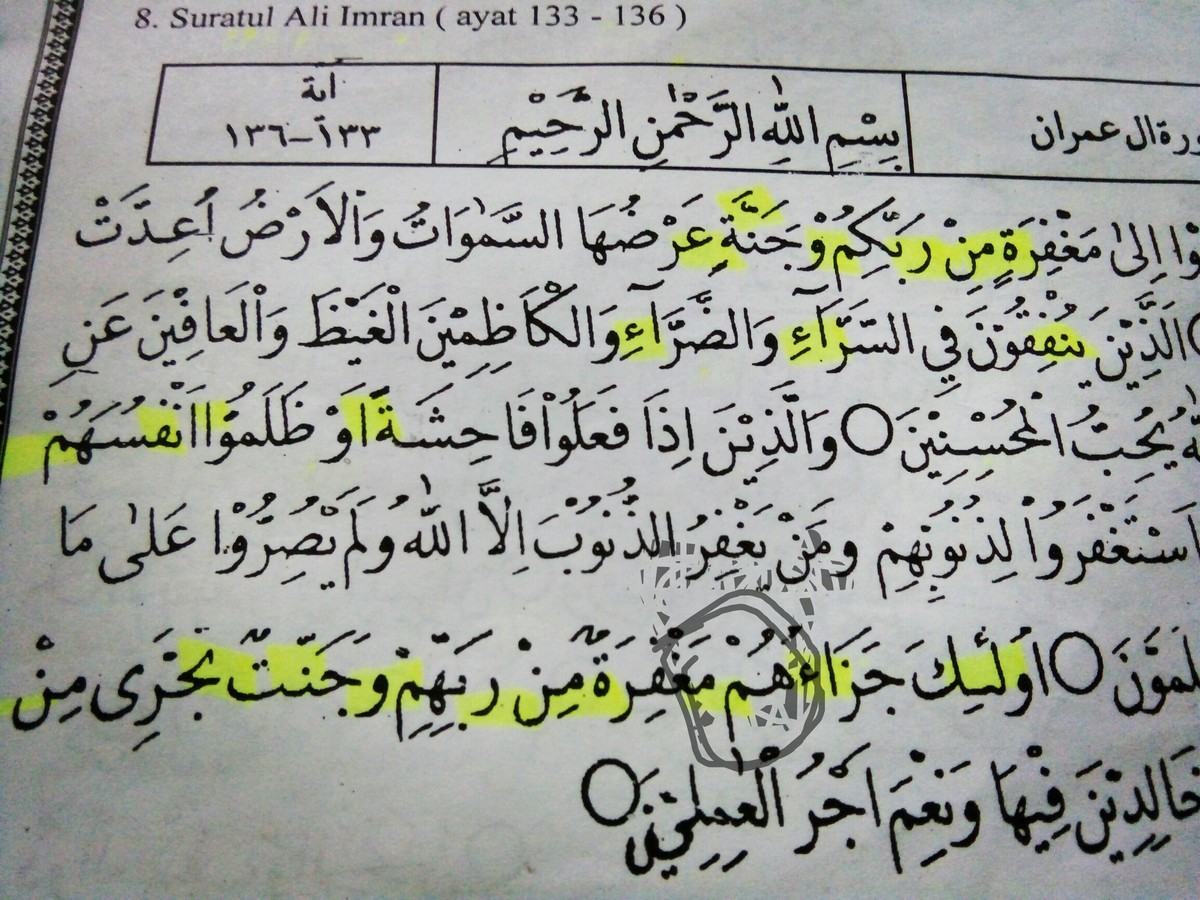 8. Suratul Ali Imran ( ayat 133 - 136 )
ال عمران
بِسْمِ اللّٰهِ الرَّحْمٰنِ الرَّحِيْمِ
اٰية
١٣٣–١٣٦
اِلىٰ مَغْفِرَةٍ مِنْ رَبِّكُمْ وَجَنَّةٍ عَرْضُهَا السَّمٰوَاتُ وَالْاَرْضُ اُعِدَّتْ
الَّذِيْنَ يُنْفِقُوْنَ فِي السَّرَّآءِ وَالضَّرَّآءِ وَالْكَاظِمِيْنَ الْغَيْظَ وَالْعَافِيْنَ عَنِ
يُحِبُّ الْمُحْسِنِيْنَ ○ وَالَّذِيْنَ اِذَا فَعَلُوْا فَاحِشَةً اَوْ ظَلَمُوْا اَنْفُسَهُمْ
لِذُنُوْبِهِمْ وَمَنْ يَغْفِرُ الذُّنُوْبَ اِلَّا اللّٰهُ وَلَمْ يُصِرُّوْا عَلىٰ مَا
○ اُولٰئِكَ جَزَاءُهُمْ مَغْفِرَةٌ مِنْ رَبِّهِمْ وَجَنّٰتٌ تَجْرِى مِنْ
خَالِدِيْنَ فِيْهَا وَنِعْمَ اَجْرُ الْعٰمِلِيْنَ ○